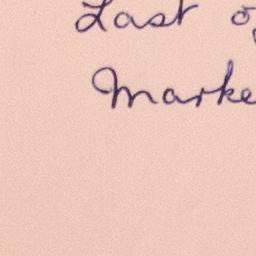 Last o
Marke